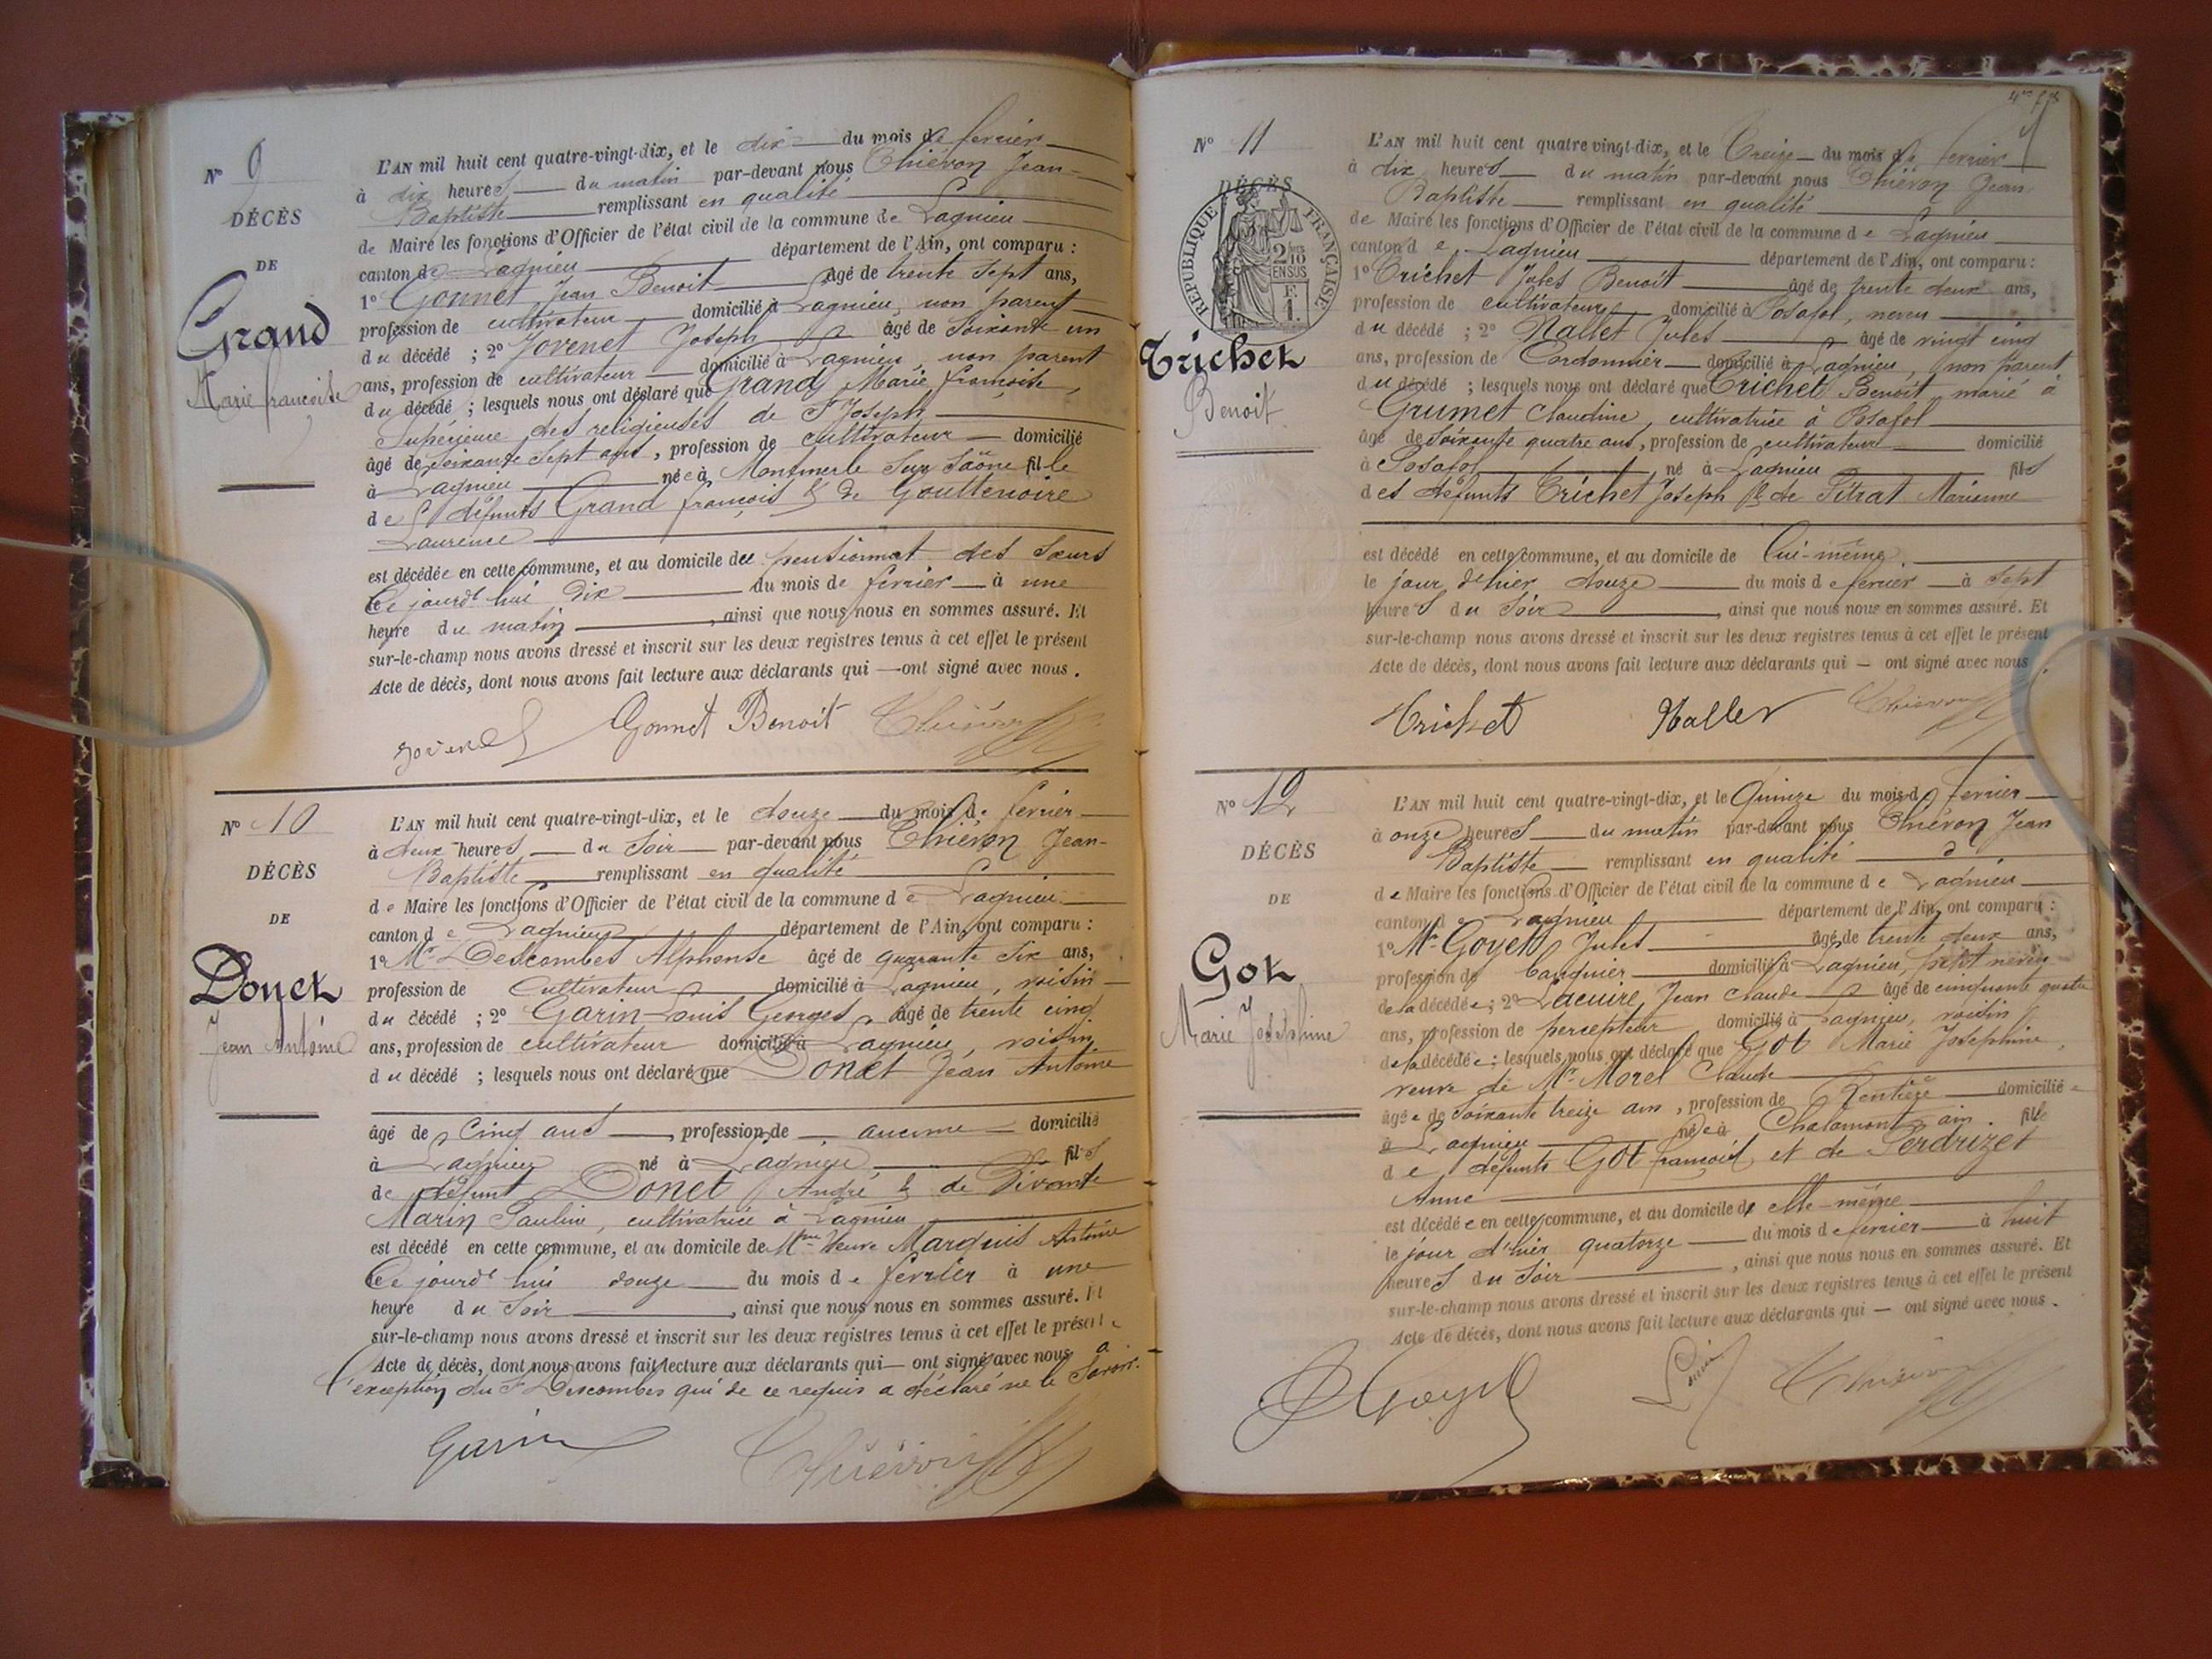 N° 9
DÉCÈS
DE
Grand
Marie françoise
L'AN mil huit cent quatre-vingt-dix, et le dix du mois de fevrier
à dix heures du matin par-devant nous Thiévon Jean-
Baptiste remplissant en qualité
de Maire les fonctions d'Officier de l'état civil de la commune de Lagnieu
canton de Lagnieu département de l'Ain, ont comparu :
1° Gonnet Jean Benoit âgé de trente sept ans,
profession de cultivateur domicilié à Lagnieu, non parent
du décédé ; 2° Jovenet Joseph âgé de soixante un
ans, profession de cultivateur domicilié à Lagnieu, non parent
du décédé ; lesquels nous ont déclaré que Grand Marie françoise,
Supérieure des religieuses de St Joseph
âgé de soixante sept ans, profession de cultivateur domicilié
à Lagnieu née à Montmerle sur Saône fille
de défunts Grand françois & de Gouttenoire
Laurence
est décédée en cette commune, et au domicile du pensionnat des Sœurs
Ce jourd'hui dix du mois de fevrier à une
heure du matin, ainsi que nous nous en sommes assuré. Et
sur-le-champ nous avons dressé et inscrit sur les deux registres tenus à cet effet le présent
Acte de décès, dont nous avons fait lecture aux déclarants qui — ont signé avec nous.
Jovenet Gonnet Benoit Thiévon
N° 10
DÉCÈS
DE
Donet
Jean Antoine
L'AN mil huit cent quatre-vingt-dix, et le douze du mois de fevrier
à deux heures du soir par-devant nous Thiévon Jean-
Baptiste remplissant en qualité
de Maire les fonctions d'Officier de l'état civil de la commune de Lagnieu
canton de Lagnieu département de l'Ain, ont comparu :
1° Mr Descombes Alphonse âgé de quarante six ans,
profession de Cultivateur domicilié à Lagnieu, voisin
du décédé ; 2° Garin Louis Georges âgé de trente cinq
ans, profession de cultivateur domicilié à Lagnieu, voisin
du décédé ; lesquels nous ont déclaré que Donet Jean Antoine
âgé de Cinq ans, profession de aucune domicilié
à Lagnieu né à Lagnieu fils
de défunt Donet André & de
Marin Pauline, cultivatrice à Lagnieu
est décédé en cette commune, et au domicile de Mme Veuve Marquis Antoine
Ce jourd'hui douze du mois de février à une
heure du soir, ainsi que nous nous en sommes assuré. Et
sur-le-champ nous avons dressé et inscrit sur les deux registres tenus à cet effet le présent
Acte de décès, dont nous avons fait lecture aux déclarants qui — ont signé avec nous à
l'exception du Sr Descombes qui de ce requis a déclaré ne le savoir.
Garin Thiévon
N° 11
DÉCÈS
RÉPUBLIQUE FRANÇAISE
2/10 EN SUS
F. 1.
Trichet
Benoit
L'AN mil huit cent quatre vingt-dix, et le Treize du mois de fevrier
à dix heures du matin par-devant nous Thiévon Jean
Baptiste remplissant en qualité
de Maire les fonctions d'Officier de l'état civil de la commune de Lagnieu
canton de Lagnieu département de l'Ain, ont comparu :
1° Trichet Jules Benoit âgé de trente deux ans,
profession de cultivateur domicilié à Posafol, neveu
du décédé ; 2° Jules âgé de vingt cinq
ans, profession de Cordonnier domicilié à Lagnieu, non parent
du décédé ; lesquels nous ont déclaré que Trichet Benoit marié à
Grumet Claudine, cultivatrice à Posafol
âgé de soixante quatre ans, profession de cultivateur domicilié
à Posafol né à Lagnieu fils
des défunts Trichet Joseph & de Pitrat Marianne
est décédé en cette commune, et au domicile de lui-même
le jour d'hier douze du mois de fevrier à sept
heures du soir, ainsi que nous nous en sommes assuré. Et
sur-le-champ nous avons dressé et inscrit sur les deux registres tenus à cet effet le présent
Acte de décès, dont nous avons fait lecture aux déclarants qui — ont signé avec nous.
Trichet Thiévon
N° 12
DÉCÈS
DE
Got
Marie Joséphine
L'AN mil huit cent quatre-vingt-dix, et le Quinze du mois de fevrier
à onze heures du matin par-devant nous Thiévon Jean
Baptiste remplissant en qualité
de Maire les fonctions d'Officier de l'état civil de la commune de Lagnieu
canton de Lagnieu département de l'Ain, ont comparu :
1° Mr Goyet Jules âgé de trente deux ans,
profession de banquier domicilié à Lagnieu, petit neveu
de la décédée ; 2° Lacuire Jean Claude âgé de cinquante quatre
ans, profession de percepteur domicilié à Lagnieu, voisin
de la décédée ; lesquels nous ont déclaré que Got Marie Joséphine,
veuve de Mr Morel Claude
âgée de soixante treize ans, profession de Rentière domiciliée
à Lagnieu née à Chalamont ain fille
de défunts Got françois et de Perdrizet
Anne
est décédée en cette commune, et au domicile de elle-même
le jour d'hier quatorze du mois de fevrier à huit
heures du soir, ainsi que nous nous en sommes assuré. Et
sur-le-champ nous avons dressé et inscrit sur les deux registres tenus à cet effet le présent
Acte de décès, dont nous avons fait lecture aux déclarants qui — ont signé avec nous.
Goyet Thiévon